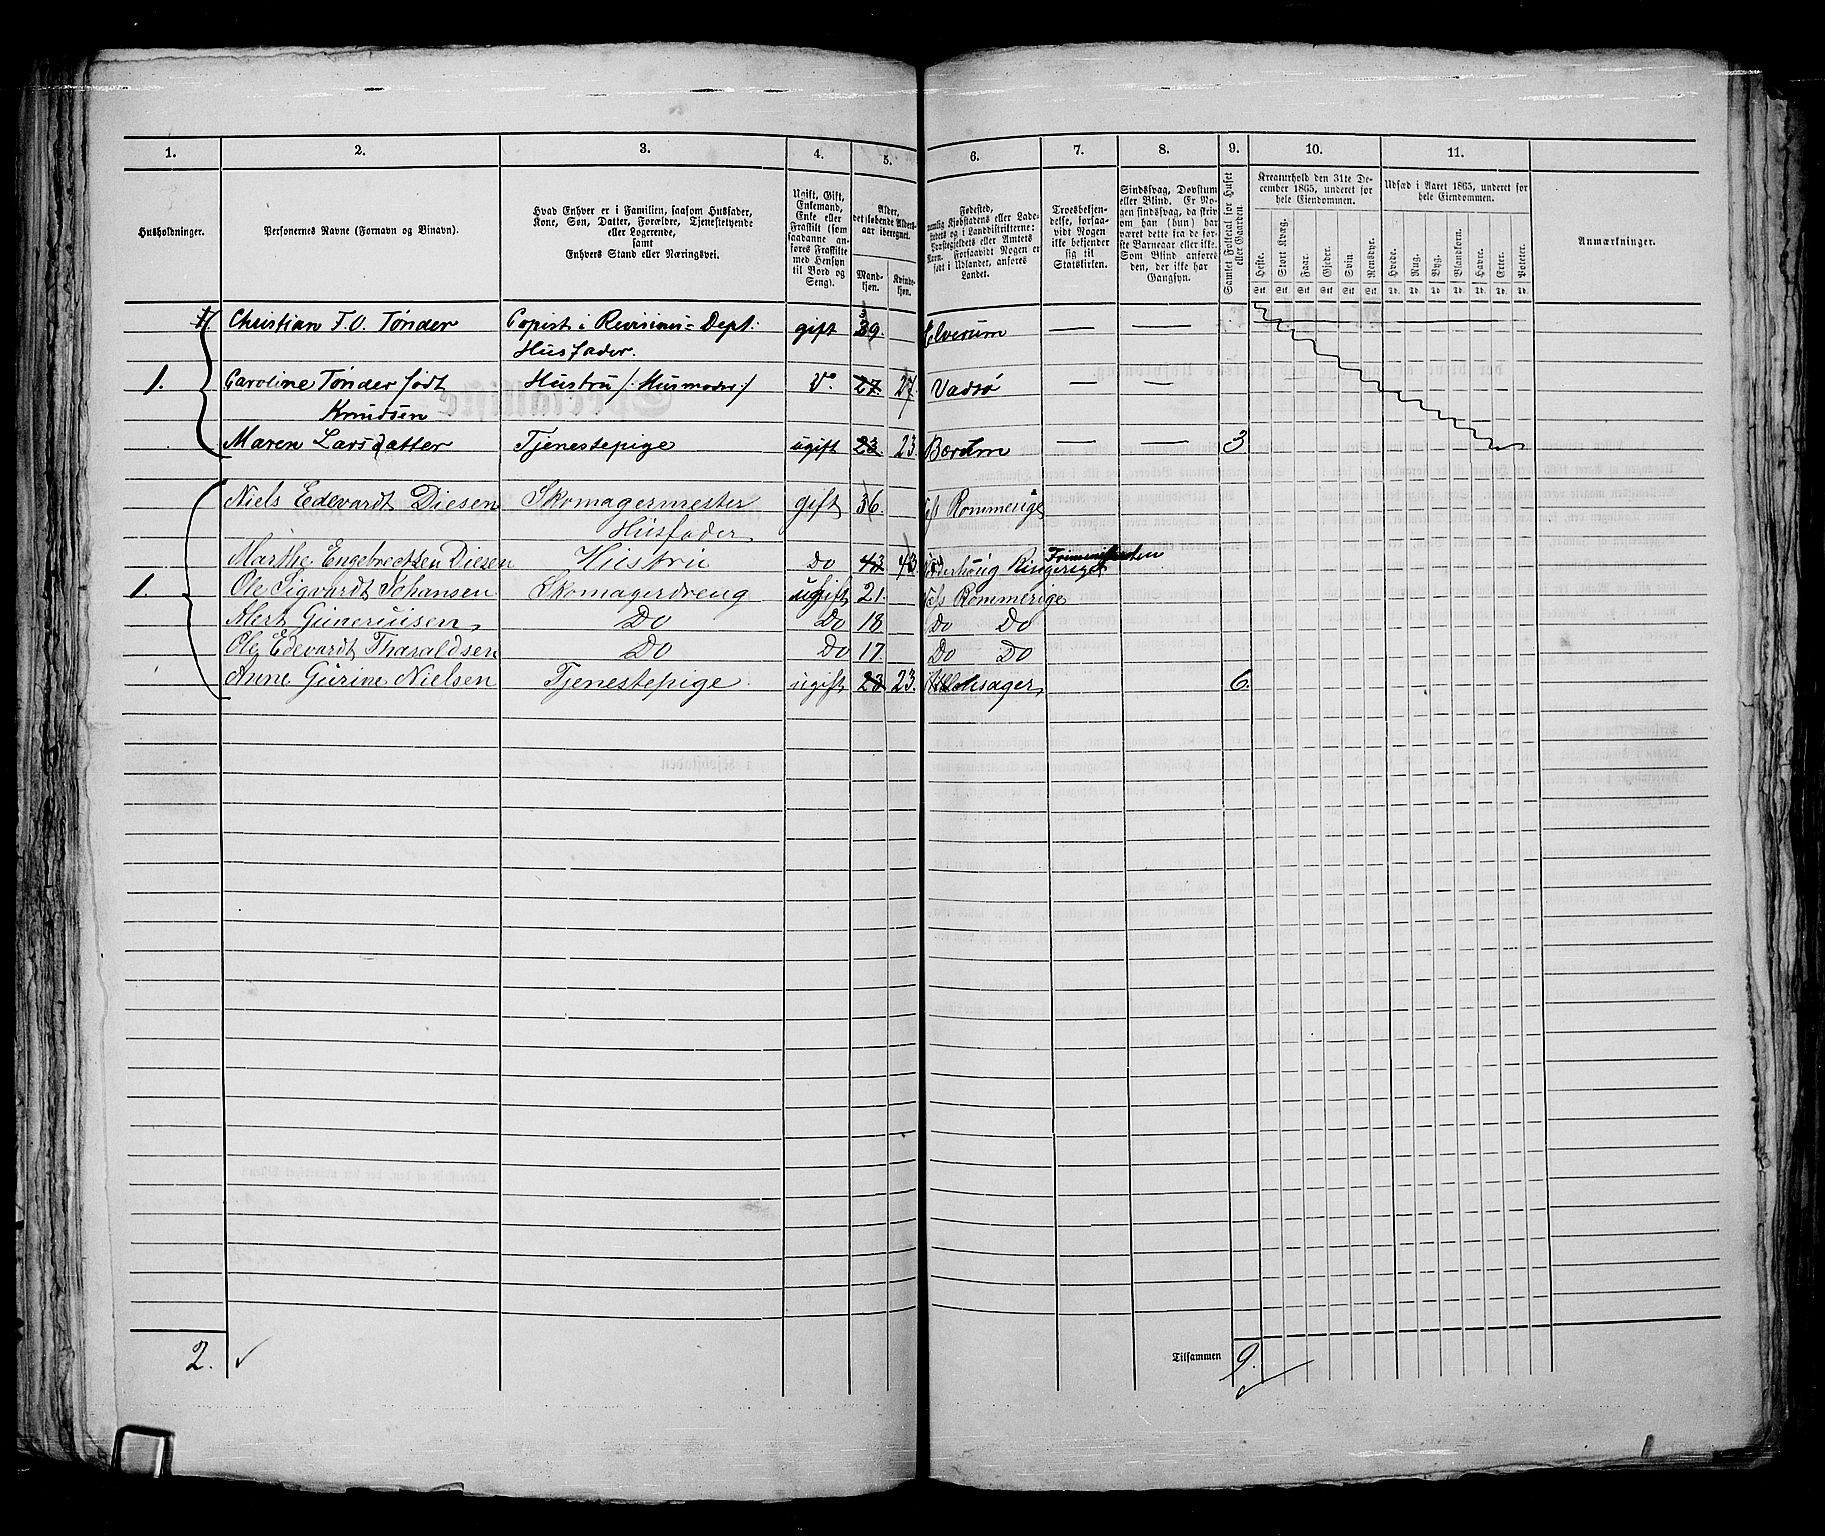 1. 2. 3. 4. 5. 6. 7. 8. 9. 10. 11.
Husholdninger.
Personernes Navne (Fornavn og Binavn).
Hvad Enhver er i Familien, saasom Husfader,
Kone, Søn, Datter, Forældre, Tjenestetyende
eller Logerende,
samt
Enhvers Stand eller Næringsvei.
Ugift, Gift,
Enkemand,
Enke eller
Fraskilt (som
saadanne an-
føres Fraskilte
med Hensyn
til Bord og
Seng).
Alder,
det løbende Alders-
aar iberegnet.
Mand-
kjøn.
Kvinde-
kjøn.
Fødested,
nemlig Kjøbstadens eller Lade-
stedets og i Landdistrikterne:
Præstegjeldets eller Amtets
Navn. Forsaavidt Nogen er
født i Udlandet, anføres
Landet.
Troesbekjen-
delse, forsaa-
vidt Nogen
ikke bekjender
sig til
Statskirken.
Sindssvag, Døvstum
eller Blind. Er No-
gen sindssvag, da skriv
om han (hun) har
været dette fra de før-
ste Barneaar eller ikke.
Som Blind anføres
den, der ikke har
Gangsyn.
Samlet Folketal for Huset
eller Gaarden.
Kreaturhold den 31te De-
cember 1865, underet for
hele Eiendommen.
Heste. Stort Kvæg. Faar. Gjeder. Svin Rensdyr.
Stk. Stk. Stk. Stk. Stk. Stk.
Udsæd i Aaret 1865, underet for
hele Eiendommen.
Hvede. Rug. Byg. Blandkorn. Havre. Erter. Poteter.
Td. Td. Td. Td. Td. Td. Td.
Anmærkninger.
Christian F.O. Tønder Copist i Revisions-Dept: gift 39. Elverum — —
Husfader.
1. Caroline Tønder født Hustru /: Husmoder :/ Do 27. 27. Vadsø — —
Knudsen
Maren Larsdatter Tjenestepige ugift 23. 23. Bærum — — 3
Niels Edevardt Diesen Skomagermester gift 36. Næs Rommerige
Husfader
Marthe Engebrechtsen Diesen Hustru Do 43 43. Norderhoug Ringeriget
1. Ole Sigvardt Johansen Skomagerdreng ugift 21. Næs Rommerige
Mert Guneriusen Do Do 18 Do Do
Ole Edevardt Tharaldsen Do Do 17. Do Do
Anne Gurine Nielsen Tjenestepige ugift 23 23. Ullensager 6.
2. Tilsammen 9.